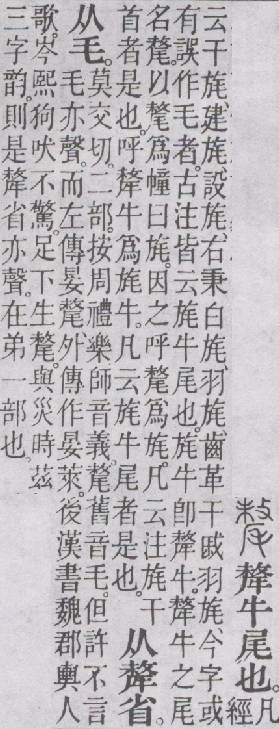 氂犛牛尾也。凡
經
云干旄、建旄、設旄、右秉白旄、羽旄、齒革干戚羽旄、今字或
有誤作毛者。古注皆云旄牛尾也。旄牛即犛牛。犛牛之尾
名氂。以氂爲幢曰旄。因之呼氂爲旄。凡云注旄干
首者是也。呼犛牛爲旄牛。凡云旄牛尾者是也。
从犛省。
从毛。
莫交切。二部。按周禮樂師音義氂舊音毛。但許不言
毛亦聲。而左傳晏氂外傳作晏萊。後漢書魏郡輿人
歌。岑熙狗吠不驚。足下生氂。與災時茲
三字韵。則是犛省亦聲。在弟一部也。